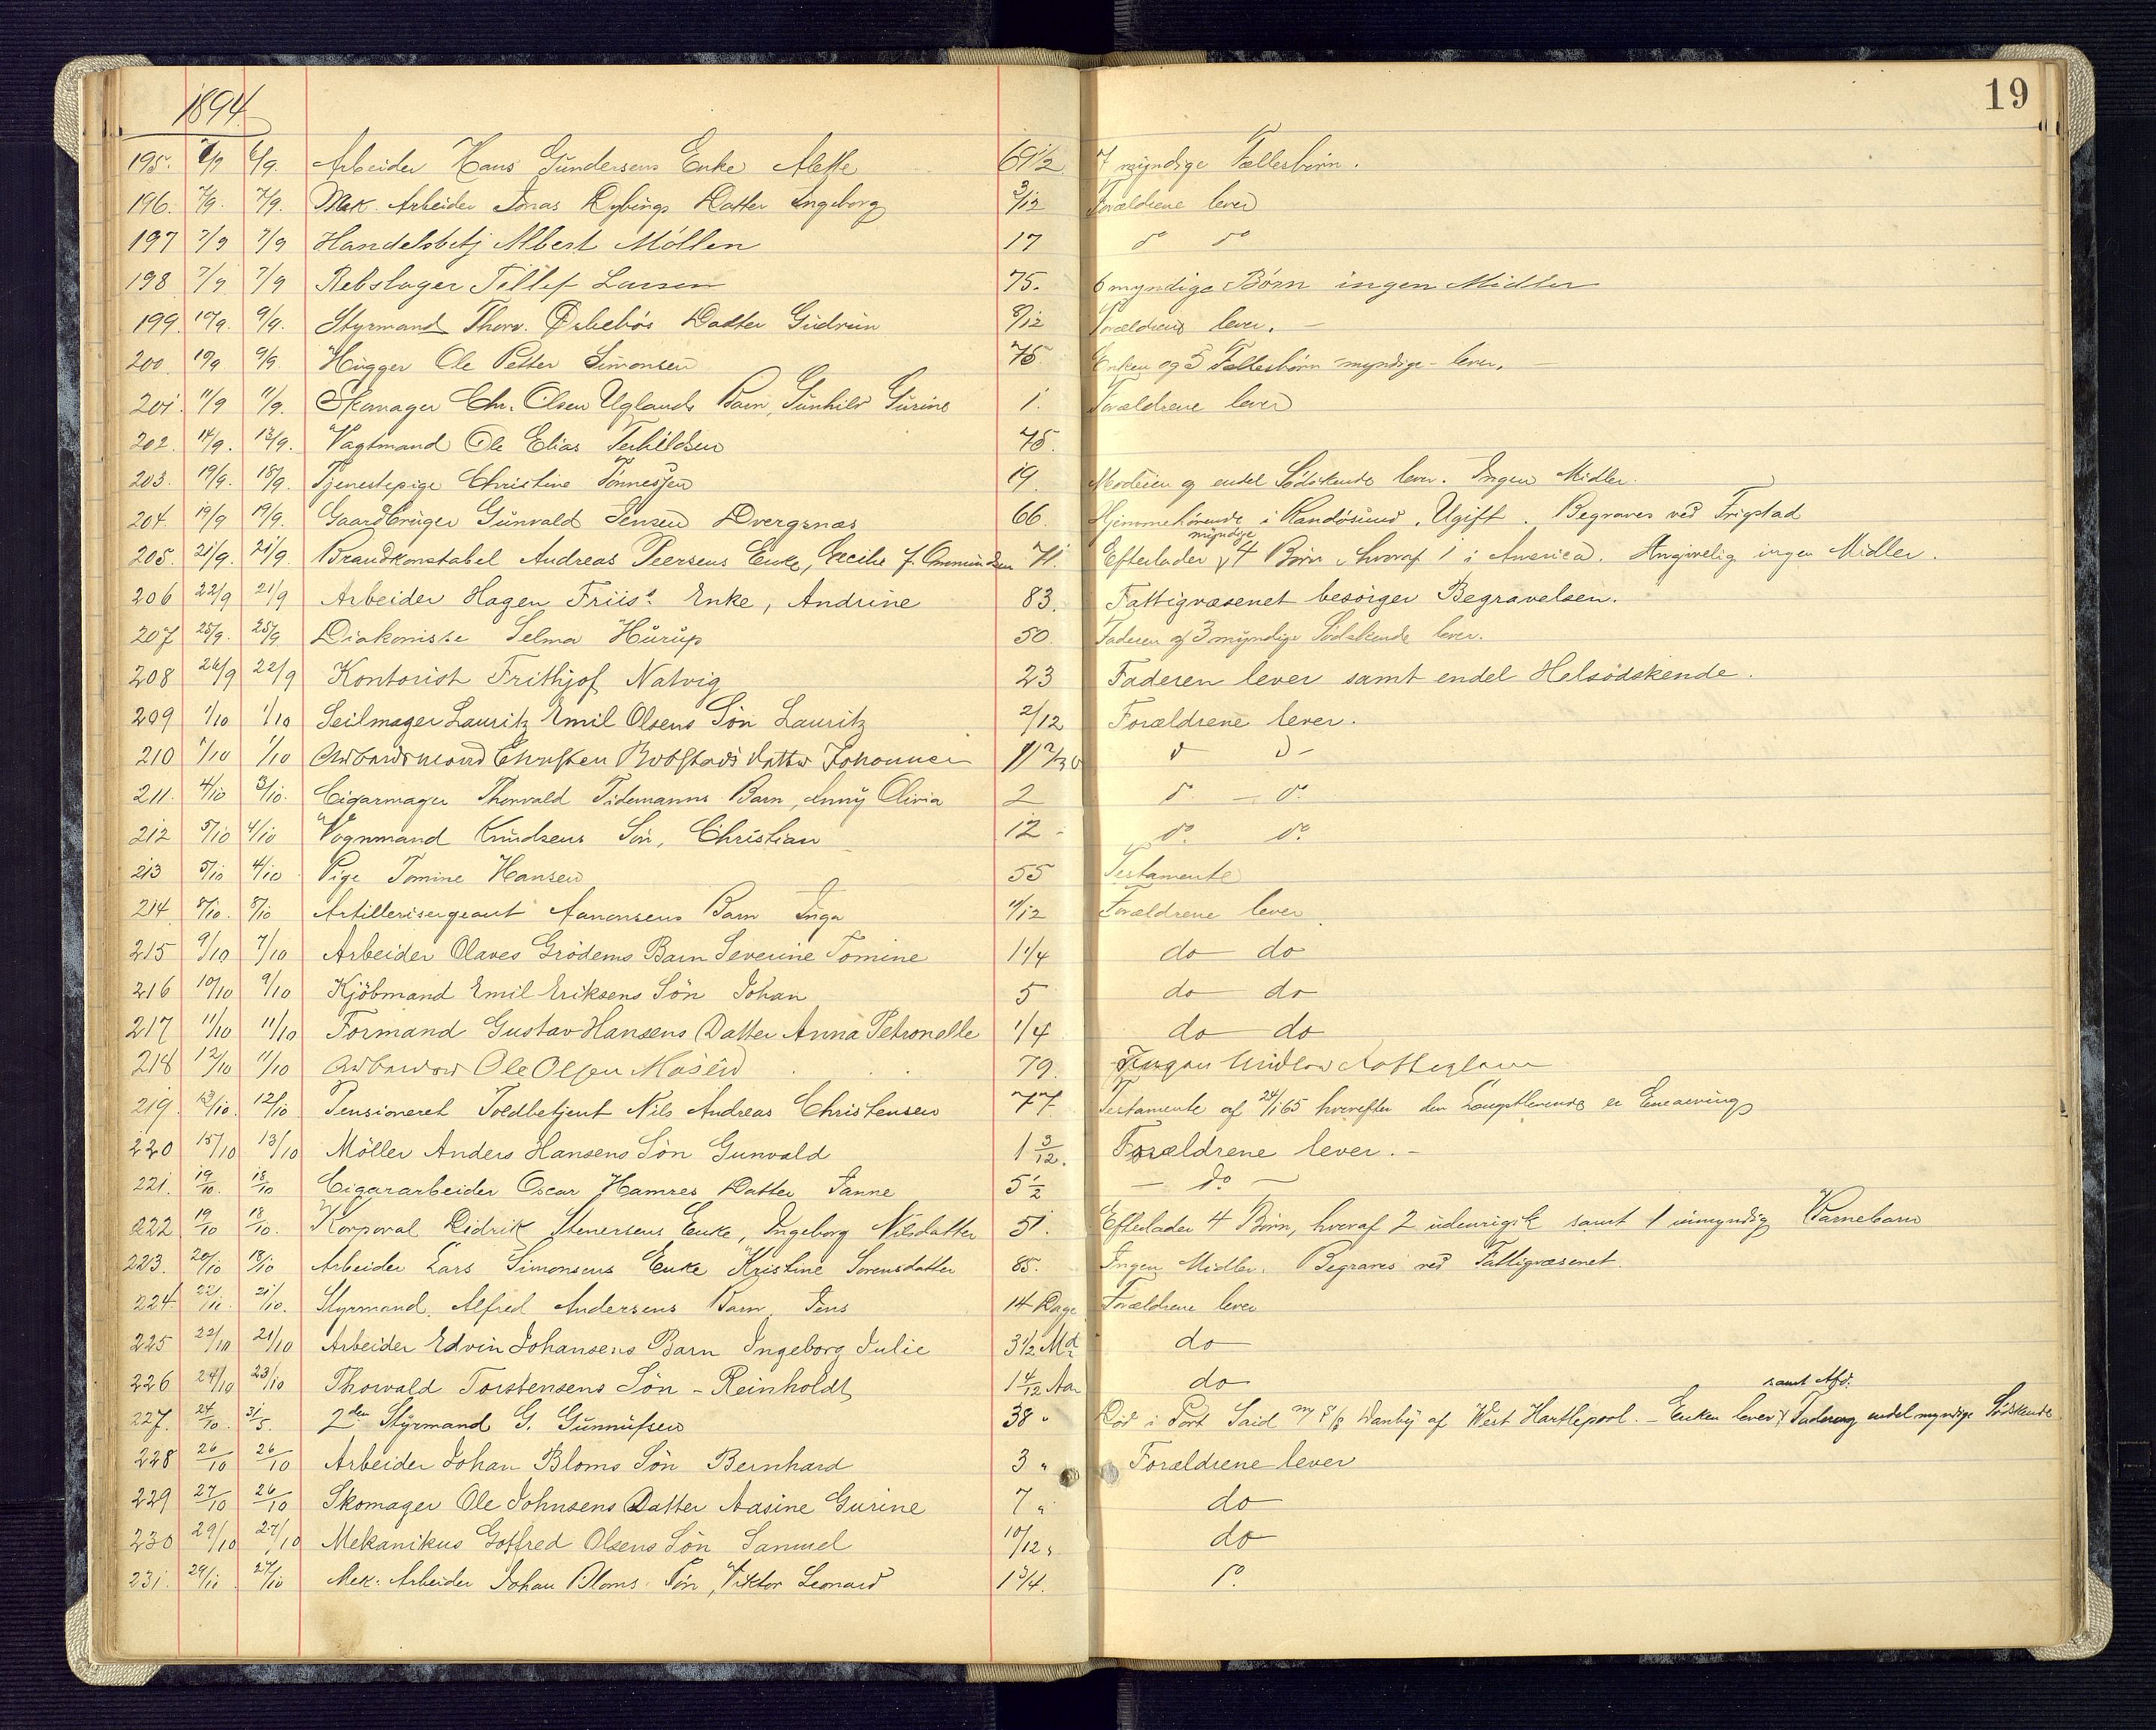 19
1894
195. 6/9 6/9. Arbeider Hans Gundersens Enke Alette 69 1/2 7 myndige Fællesbørn.
196. 7/9. 7/9. Mek. Arbeider Jonas Dybings Datter Ingeborg 3/12 Forældrene lever
197 7/9 7/9 Handelsbetj Albert Möllen 17 do do
198 7/9 7/9 Rebslager Tellef Larsen 75. 6 myndige Børn ingen Midler
199. 10/9. 9/9. Styrmand Thorv. Datter Gudrun 8/12 Forældrene lever. —
200 10/9 9/9. Hugger Ole Petter Simonsen 75 Enken og 5 Fællesbørn - myndige - lever.
201. 11/9 11/9. Skomager Chr. Olsen Uglands Barn, Gunhild Gurine 1. Forældrene lever
202. 14/9. 13/9. Vagtmand Ole Elias Terkildsen 75.
203. 19/9. 18/9. Tjenestepige Christine Tønnessen 19. Moderen og endel Sødskende lever. Ingen Midler.
204. 19/9 19/9. Gaardbruger Gunvald Jensen Dvergsnæs 66. Hjemmehørende i Randøsund. Ugift. Begraves ved Frigstad
205. 21/9. 21/9. Brandkonstabel Andreas Peersens Enke, Cecilie f. Ommundsen 71. Efterlader myndige 4 Børn, hvoraf 1 i America. Angivelig ingen Midler.
206 22/9 21/9 Arbeider Hagen Friis's Enke, Andrine 83. Fattigvæsenet besörger Begravelsen.
207 25/9. 25/9 Diakonisse Selma Hurup 50. Faderen og 3 myndige Sødskende lever.
208 26/9 22/9 Kontorist Frithjof Natvig 23 Faderen lever samt endel Helsödskende.
209 1/10 1/10 Seilmager Lauritz Emil Olsens Sön Lauritz 2/12 Forældrene lever.
210 1/10 1/10 Arbeidsmand Christen Datter Johanne do do
211. 4/10 3/10. Cigarmager Thorvald Tidemanns Barn, Anny Olivia 2 do — do
212 5/10 4/10 Vognmand Knudsens Søn, Christian 12 - do. do.
213 5/10 4/10 Pige Tomine Hansen 55 Testamente
214 8/10. 8/10 Artillerisergeant Aanonsens Barn Inga 11/12 Forældrene lever
215 9/10 7/10 Arbeider Olaves Grödems Barn Severine Tomine 1 1/4 do do
216 10/10 9/10 Kjöbmand Emil Eriksens Sön Johan 5 do do
217 11/10 11/10 Formand Gustav Hansens Datter Anna Petronelle 1/4 do do
218 12/10 11/10 Arbeider Ole Olsen 79. Ingen Midler
219. 13/10. 12/10 Pensioneret Toldbetjent Nils Andreas Christensen 77 Testamente af 24/1 65 hvorefter den Længstlevende er Enearving
220 15/10 13/10 Möller Anders Hansens Sön Gunvald 1 3/12. Forældrene lever. -
221. 19/10. 18/10 Cigararbeider Oscar Hamres Datter Janne 5 1/2 — do —
222 19/10 18/10. Korporal Didrik Stenersens Enke, Ingeborg Nilsdatter 51. Efterlader 4 Børn, hvoraf 2 udenrigsk samt 1 umyndig Barnebarn
223. 20/10 18/10 Arbeider Lars Simonsens Enke Kristine Sorensdatter 85. Ingen Midler. Begraves ved Fattigvæsenet.
224. 22/10. 21/10. Styrmand Alfred Andersens Barn Jens 14 Dage Forældrene lever
225 22/10 21/10 Arbeider Edvin Johansens Barn Ingeborg Julie 3 1/2 Md do
226 24/10 23/10 Thorvald Torstensens Sön - Reinholdt 1 4/12 Aar do
227. 24/10. 31/5. 2den Styrmand G. Gunnufsen 38 " Död i Port Said m/ S/S Danby af West Hartlepool. — Enken lever samt Afd. Fader og endel myndige Sødskende
228 26/10 26/10 Arbeider Johan Bloms Sön Bernhard 3 " Forældrene lever
229 27/10 26/10 Skomager Ole Johnsens Datter Aasine Gurine 7 " do
230 29/10 27/10 Mekanikus Gotfred Olsens Sön Samuel 10/12 " do
231. 29/10 27/10 Mek. Arbeider Johan Bloms Søn, Viktor Leonard 1 3/4. do.